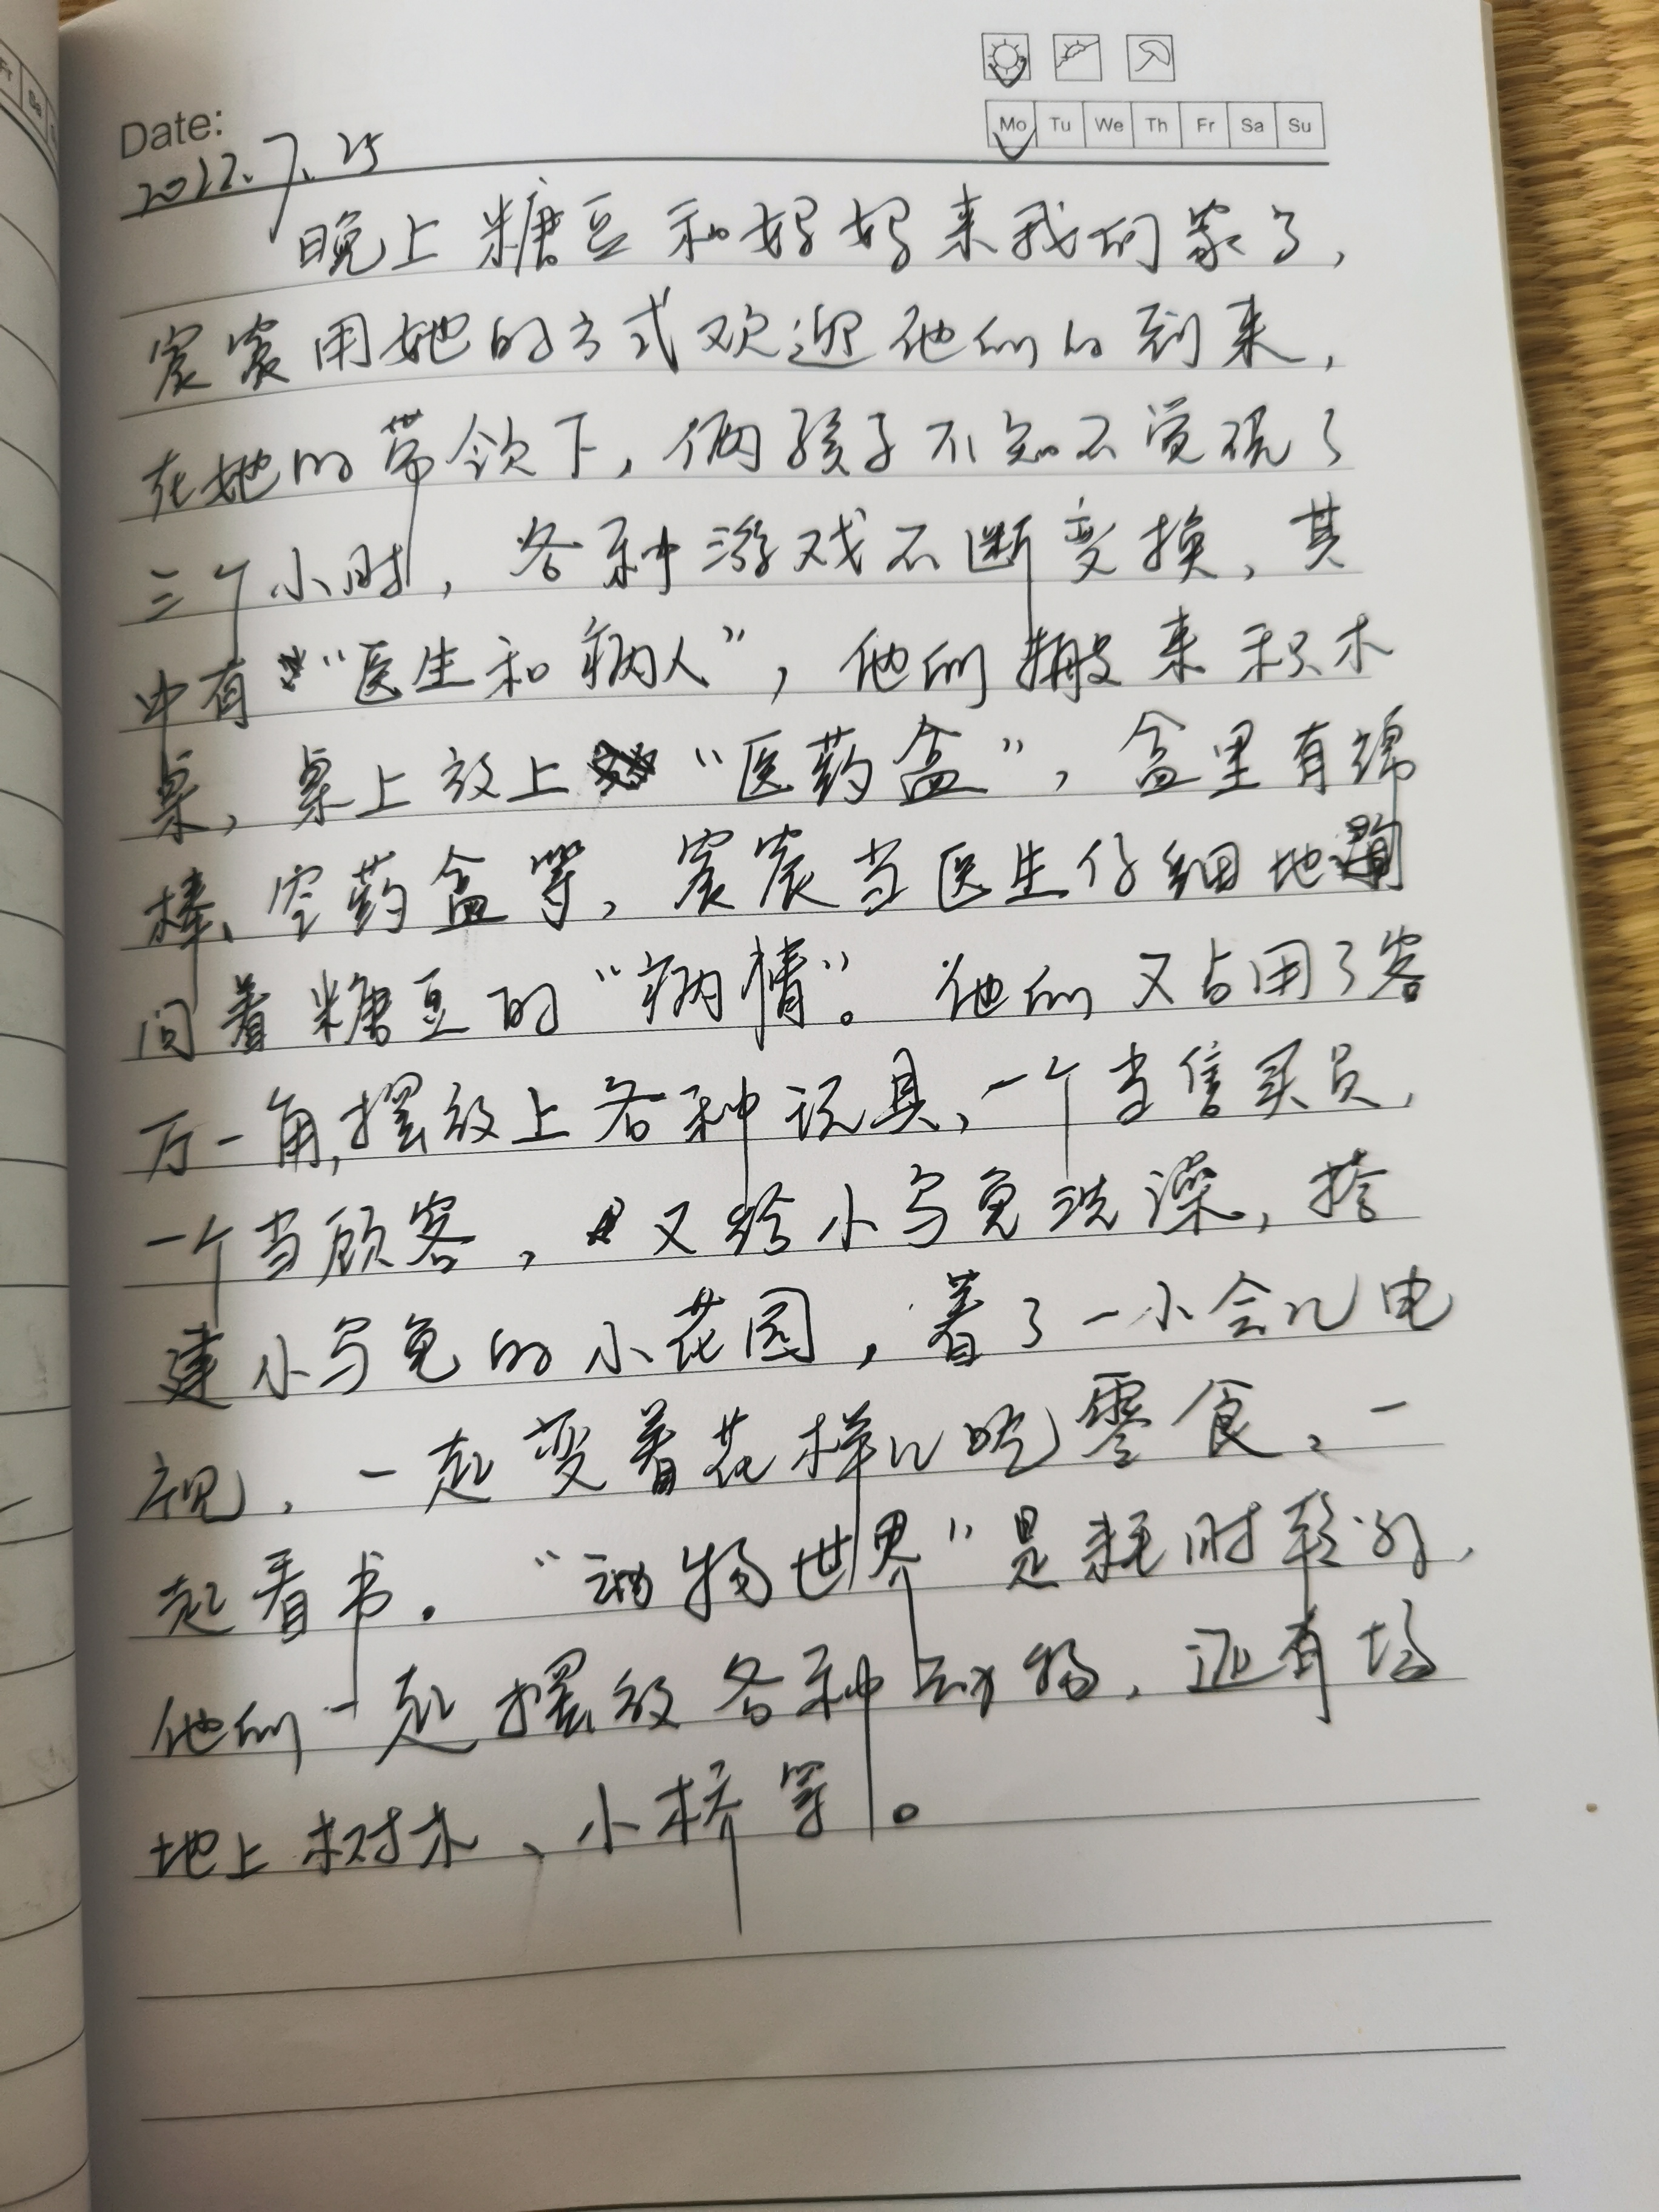 Date:
2022.7.25
Mo Tu We Th Fr Sa Su
晚上糖豆和好好来我们家了,
宸宸用她的方式欢迎他们的到来,
在她的带领下,俩孩子不知不觉玩了
三个小时,各种游戏不断变换,其
中有“医生和病人”,他们搬来积木
桌,桌上放上“医药盒”,盒里有绵
棒、空药盒等,宸宸当医生仔细地询
问着糖豆的“病情”。他们又占用了客
厅一角,摆放上各种玩具,一个当售买员,
一个当顾客,又给小乌龟洗澡,搭
建小乌龟的小花园,看了一小会儿电
视,一起变着花样儿吃零食、一
起看书。“动物世界”是耗时较的,
他们一起摆放各种动物,还有场
地上树木、小桥等。
Fr Sa